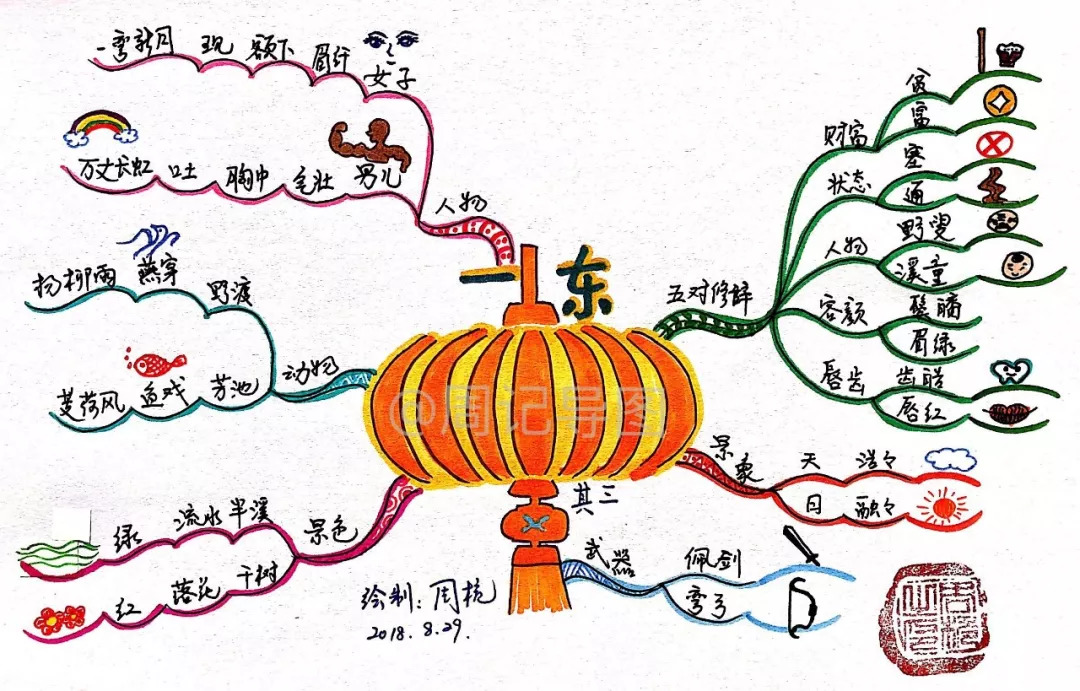 一弯新月 现 额下 眉纤 女子
万丈长虹 吐 胸中 气壮 男儿
人物
杨柳雨 燕穿 野渡
芰荷风 鱼戏 芳池
动物
绿 流水 半溪
红 落花 千树
景色
一东
其三
@周记导图
五对修辞
财富
贫
富
状态
塞
通
人物
野叟
溪童
容颜
鬓皤
眉绿
唇齿
齿皓
唇红
景象
天 浩々
日 融々
武器
佩剑
弯弓
绘制:周梳
2018.8.29.